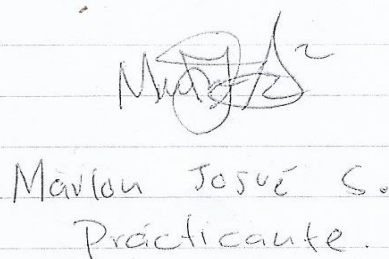 Marlon Josué S.
Prácticante.